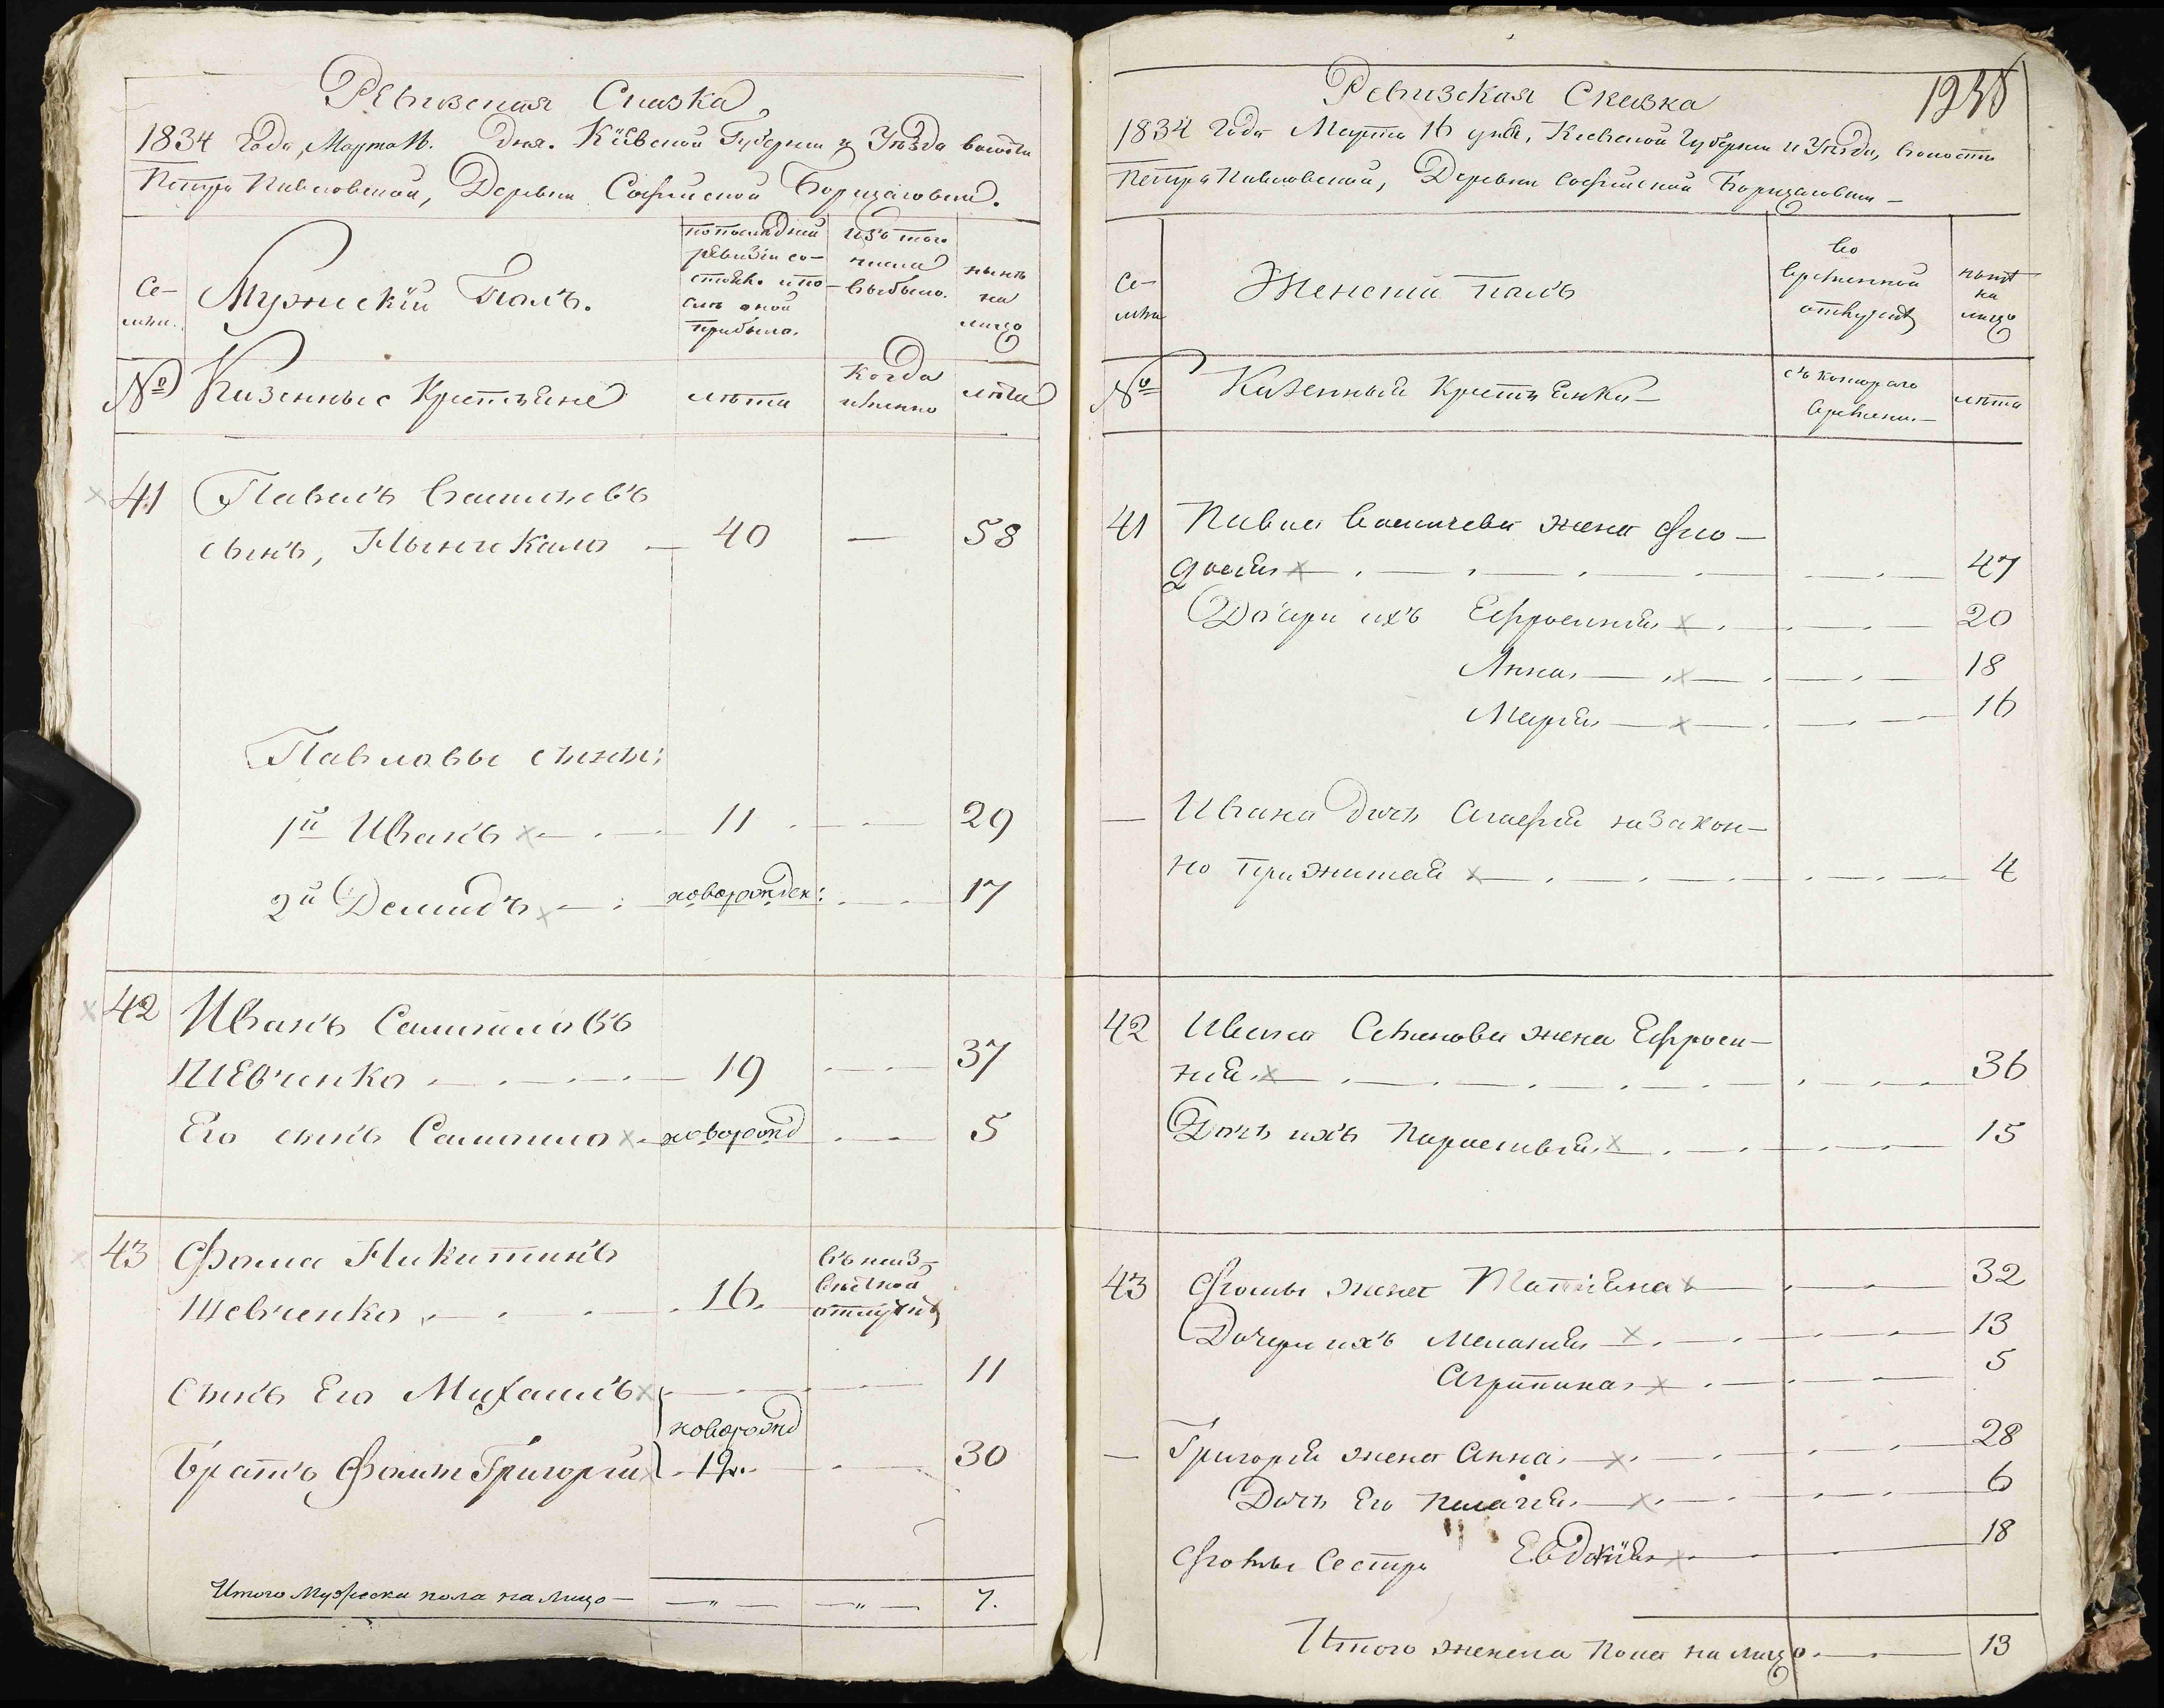 Ревизская Сказка
1834 Года, Марта 16. Дня. Кіевской Губерніи и Уѣзда волости
Петро Павловской, Деревни Софійской Борщаговки.
Се-
мьи.
Мужескій Полъ.
по последней
ревизіи со-
стояло и по-
слѣ оной
прибыло.
изъ того
числа
выбыло.
нынѣ
на
лицо
№
Казенные Крестьяне
лѣта
Когда
именно
лѣта
41 Павелъ Васильевъ
сынъ, Нынчекало — 40 — 58
Павловы сыны:
1й Иванъ 11 29
2й Демидъ новорожден: 17
42 Иванъ Самойловъ
Шевченко 19 37
Его сынъ Самойло новорожд 5
43 Фома Никитинъ
Шевченко 16. въ неиз-
вѣстной
отлучкѣ
сынъ Его Михаилъ новорожд 11
братъ Фомы Григорій 12 30
Итого Мужеска пола на лицо — 7.
1238
Ревизская Сказка
1834 Года Марта 16 дня, Киевской Губерніи и Уѣзда, волости
Петро Павловской, Деревни Софийской Борщаговки —
Се-
мьи
Женский полъ
во
временной
отлучкѣ
нынѣ
на
лицо
№
Казенныя Крестьянки —
съ котораго
времени. —
лѣта
41 Павла Васильева жена Фео-
досия 47
Дочери ихъ Ефросиния 20
Анна 18
Мария 16
— Ивана дочь Агафия незакон-
но прижитая 4
42 Ивана Самойлова жена Ефроси-
ния 36
Дочь ихъ Параскивия 15
43 Фомы жена Татіяна 32
Дочери ихъ Мелания 13
Агрипина 5
— Григория жена Анна 28
Дочь Его Пелагия 6
Фомы Сестра Евдокія 18
Итого женска пола на лицо 13